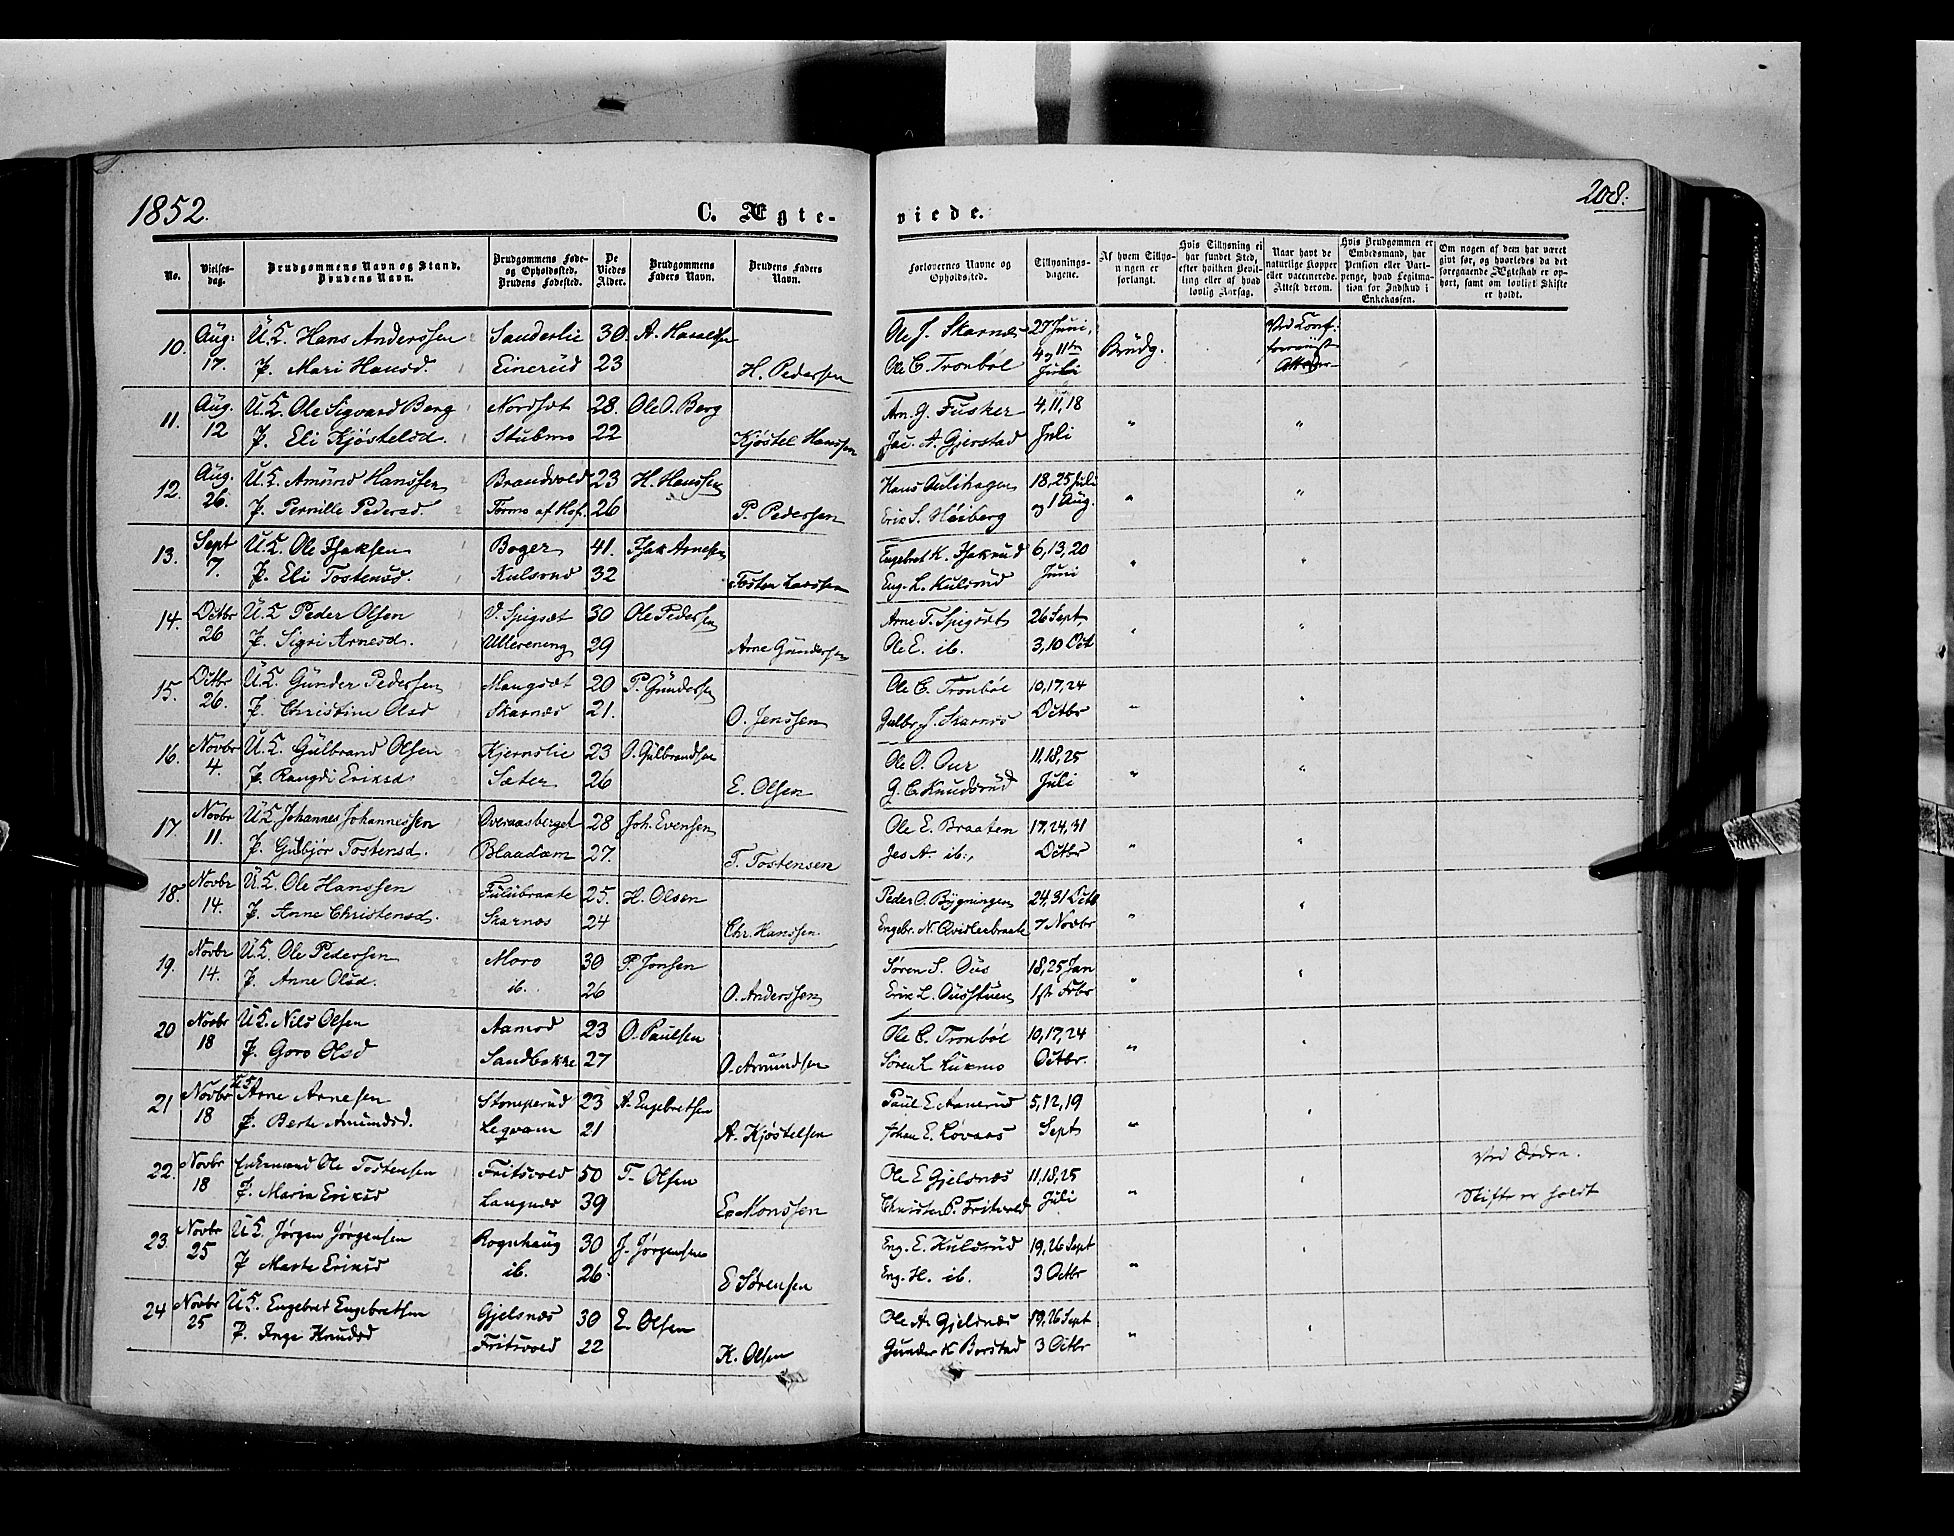 1852.
C. Ægte-
viede.
208.
No.
Vielses-
dag.
Brudgommens Navn og Stand.
Brudens Navn.
Brudgommens Føde-
og Opholdssted.
Brudens Fødested.
De
Viedes
Alder.
Brudgommens
Faders Navn.
Brudens Faders
Navn.
Forlovernes Navne og
Opholdssted.
Tillysnings-
dagene.
Af hvem Tillys-
ningen er
forlangt.
Hvis Tillysning ei
har fundet Sted,
efter hvilken Bevil-
ling eller af hvad
lovlig Aarsag.
Naar havt de
naturlige Kopper
eller vaccinerede.
Attest derom.
Hvis Brudgommen er
Embedsmand, har
Pension eller Vart-
penge, hvad Legitima-
tion for Indskud i
Enkekassen.
Om nogen af dem har været
givt før, og hvorledes da det
foregaaende Ægteskab er op-
hørt, samt om lovligt Skifte
er holdt.
10. Aug. U.K. Hans Anderssen Sanderlie 30. A. Haraldsen Ole J. Skarnæs 27 Juni,
17. P. Mari Hansd. Einerud 23 H. Pedersen Ole C. Tronbøl 4 og 11te Juli Brudg.
11. Aug. U.K. Ole Sigvard Berg Nordsæt 28. Ole O. Berg Arn. G. Fusker 4, 11, 18
12 P. Eli Kjøstelsd. Stubmo 22 Kjøstel Hanssen Jac. A. Gjerstad Juli " "
12. Aug. U.K. Amund Hanssen Brandvold 23 H. Hanssen Hans Aulshagen 18, 25 Juli
26. P. Pernille Pedersd. Tormo af Hof. 26 P. Pedersen Erik S. Høiberg og 1 Aug. " "
13. Sept U.K. Ole Isaksen Boger 41. Isak Arnesen Engebret K. Isakrud 6, 13, 20
7. P. Eli Tostensd. Kulsrud 32 Tosten Larssen Eng. L. Kulsrud Juni " "
14. Octbr U.K. Peder Olsen V. Spigsæt 30 Ole Pedersen Arne T. Spigsæt 26 Sept,
26 P. Sigri Arnesd. Ullereneng 29 Arne Gundersen Ole E. ib. 3, 10 Oct " "
15. Octbr U.K. Gunder Pedersen Mangsæt 20 P. Gundersen Ole C. Tronbøl 10, 17, 24
26. P. Christine Olsd Skarnæs 21. O. Jenssen Gulbr. J. Skarnæs Octbr " "
16. Novbr U.K. Gulbrand Olsen Kjernslie 23 O. Gulbrandsen Ole O. Our 11, 18, 25
4. P. Rangdi Eriksd. Sæter 26 E. Olsen G. C. Knudsrud Juli " "
17. Novbr U.K. Johannes Johannessen Overaasberget 28 Joh. Evensen Ole E. Braaten 17, 24, 31
11. P. Gulbjør Tostensd. Blaadam 27. T. Tostensen Jes A. ib., Octbr " "
18. Novbr U.K. Ole Hanssen Fulubraate 25. H. Olsen Peder O. Bygningen 24, 31 Octb
14. P. Anne Christensd. Skarnæs 24 Chr. Hanssen. Engebr. N. Qvidlerbraate 7 Novbr " "
19. Novbr U.K. Ole Pedersen Moro 30 P. Jonsen Søren S. Ous 18, 25 Jan
14. P. Anne Olsd. ib. 26 O. Anderssen Erik L. Ousstuen 1ste Febr " "
20 Novbr U.K. Nils Olsen Aamod 23 O. Paulsen Ole C. Tronbøl 10, 17, 24
18 P. Goro Olsd Sandbakke 27 O. Amundsen Søren L Kukmo Octbr. " "
21 Novbr U.K. Arne Arnesen Stomperud 23 A. Engebretsen Paul E. Aanerud 5, 12, 19
18 P. Berte Amundsd. Legvam 21 A. Kjøstelsen Johan E. Løvaas Sept " "
22. Novbr Enkemand Ole Tostensen Fritsvold 50 T. Olsen Ole E Gjelsnæs 11, 18, 25 Ved Døden.
18 P. Maria Eriksd Langnæs 39 E. Monssen Christen P. Fritsvold Juli " " Skifte er holdt
23. Novbr U.K. Jørgen Jørgensen Rognhaug 30 J. Jørgensen Eng. E. Kulsrud 19, 26 Sept
25 P Marte Eriksd ib. 26. E Sørensen Eng. H. ib. 3 Octbr " "
24 Novbr U.K. Engebret Engebretsen Gjelsnæs 30 E. Olsen Ole A. Gjelsnæs 19, 26 Sept
25 P. Inge Knudsd Fritsvold 22 K. Olsen Gunder K Borstad 3 Octbr " "